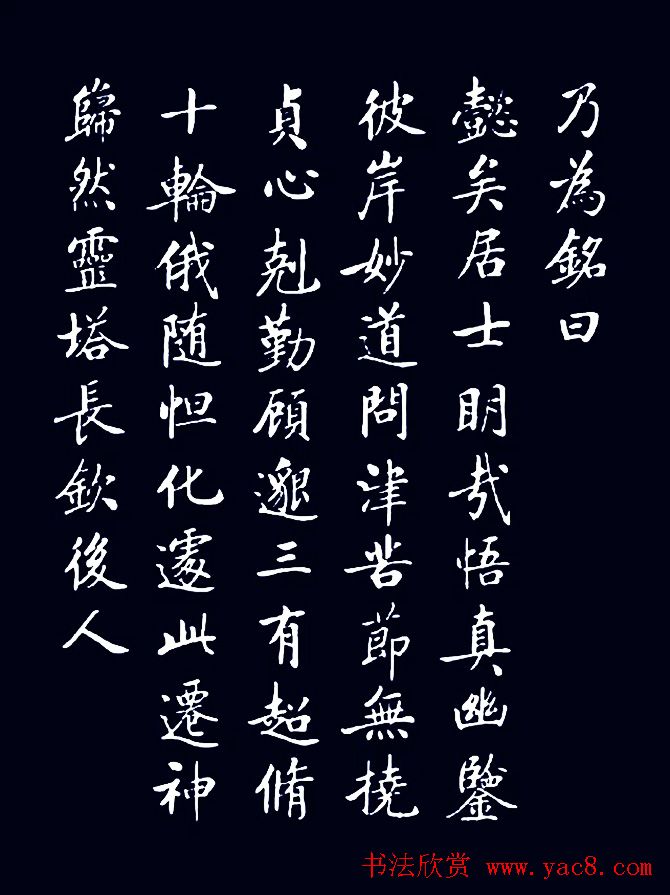 乃為銘曰
懿矣居士明哉悟真幽鑒
彼岸妙道問津苦節無撓
貞心剋勤顧邈三有超脩
十輪俄随怛化遽此遷神
歸然靈塔長欽後人
书法欣赏 www.yac8.com